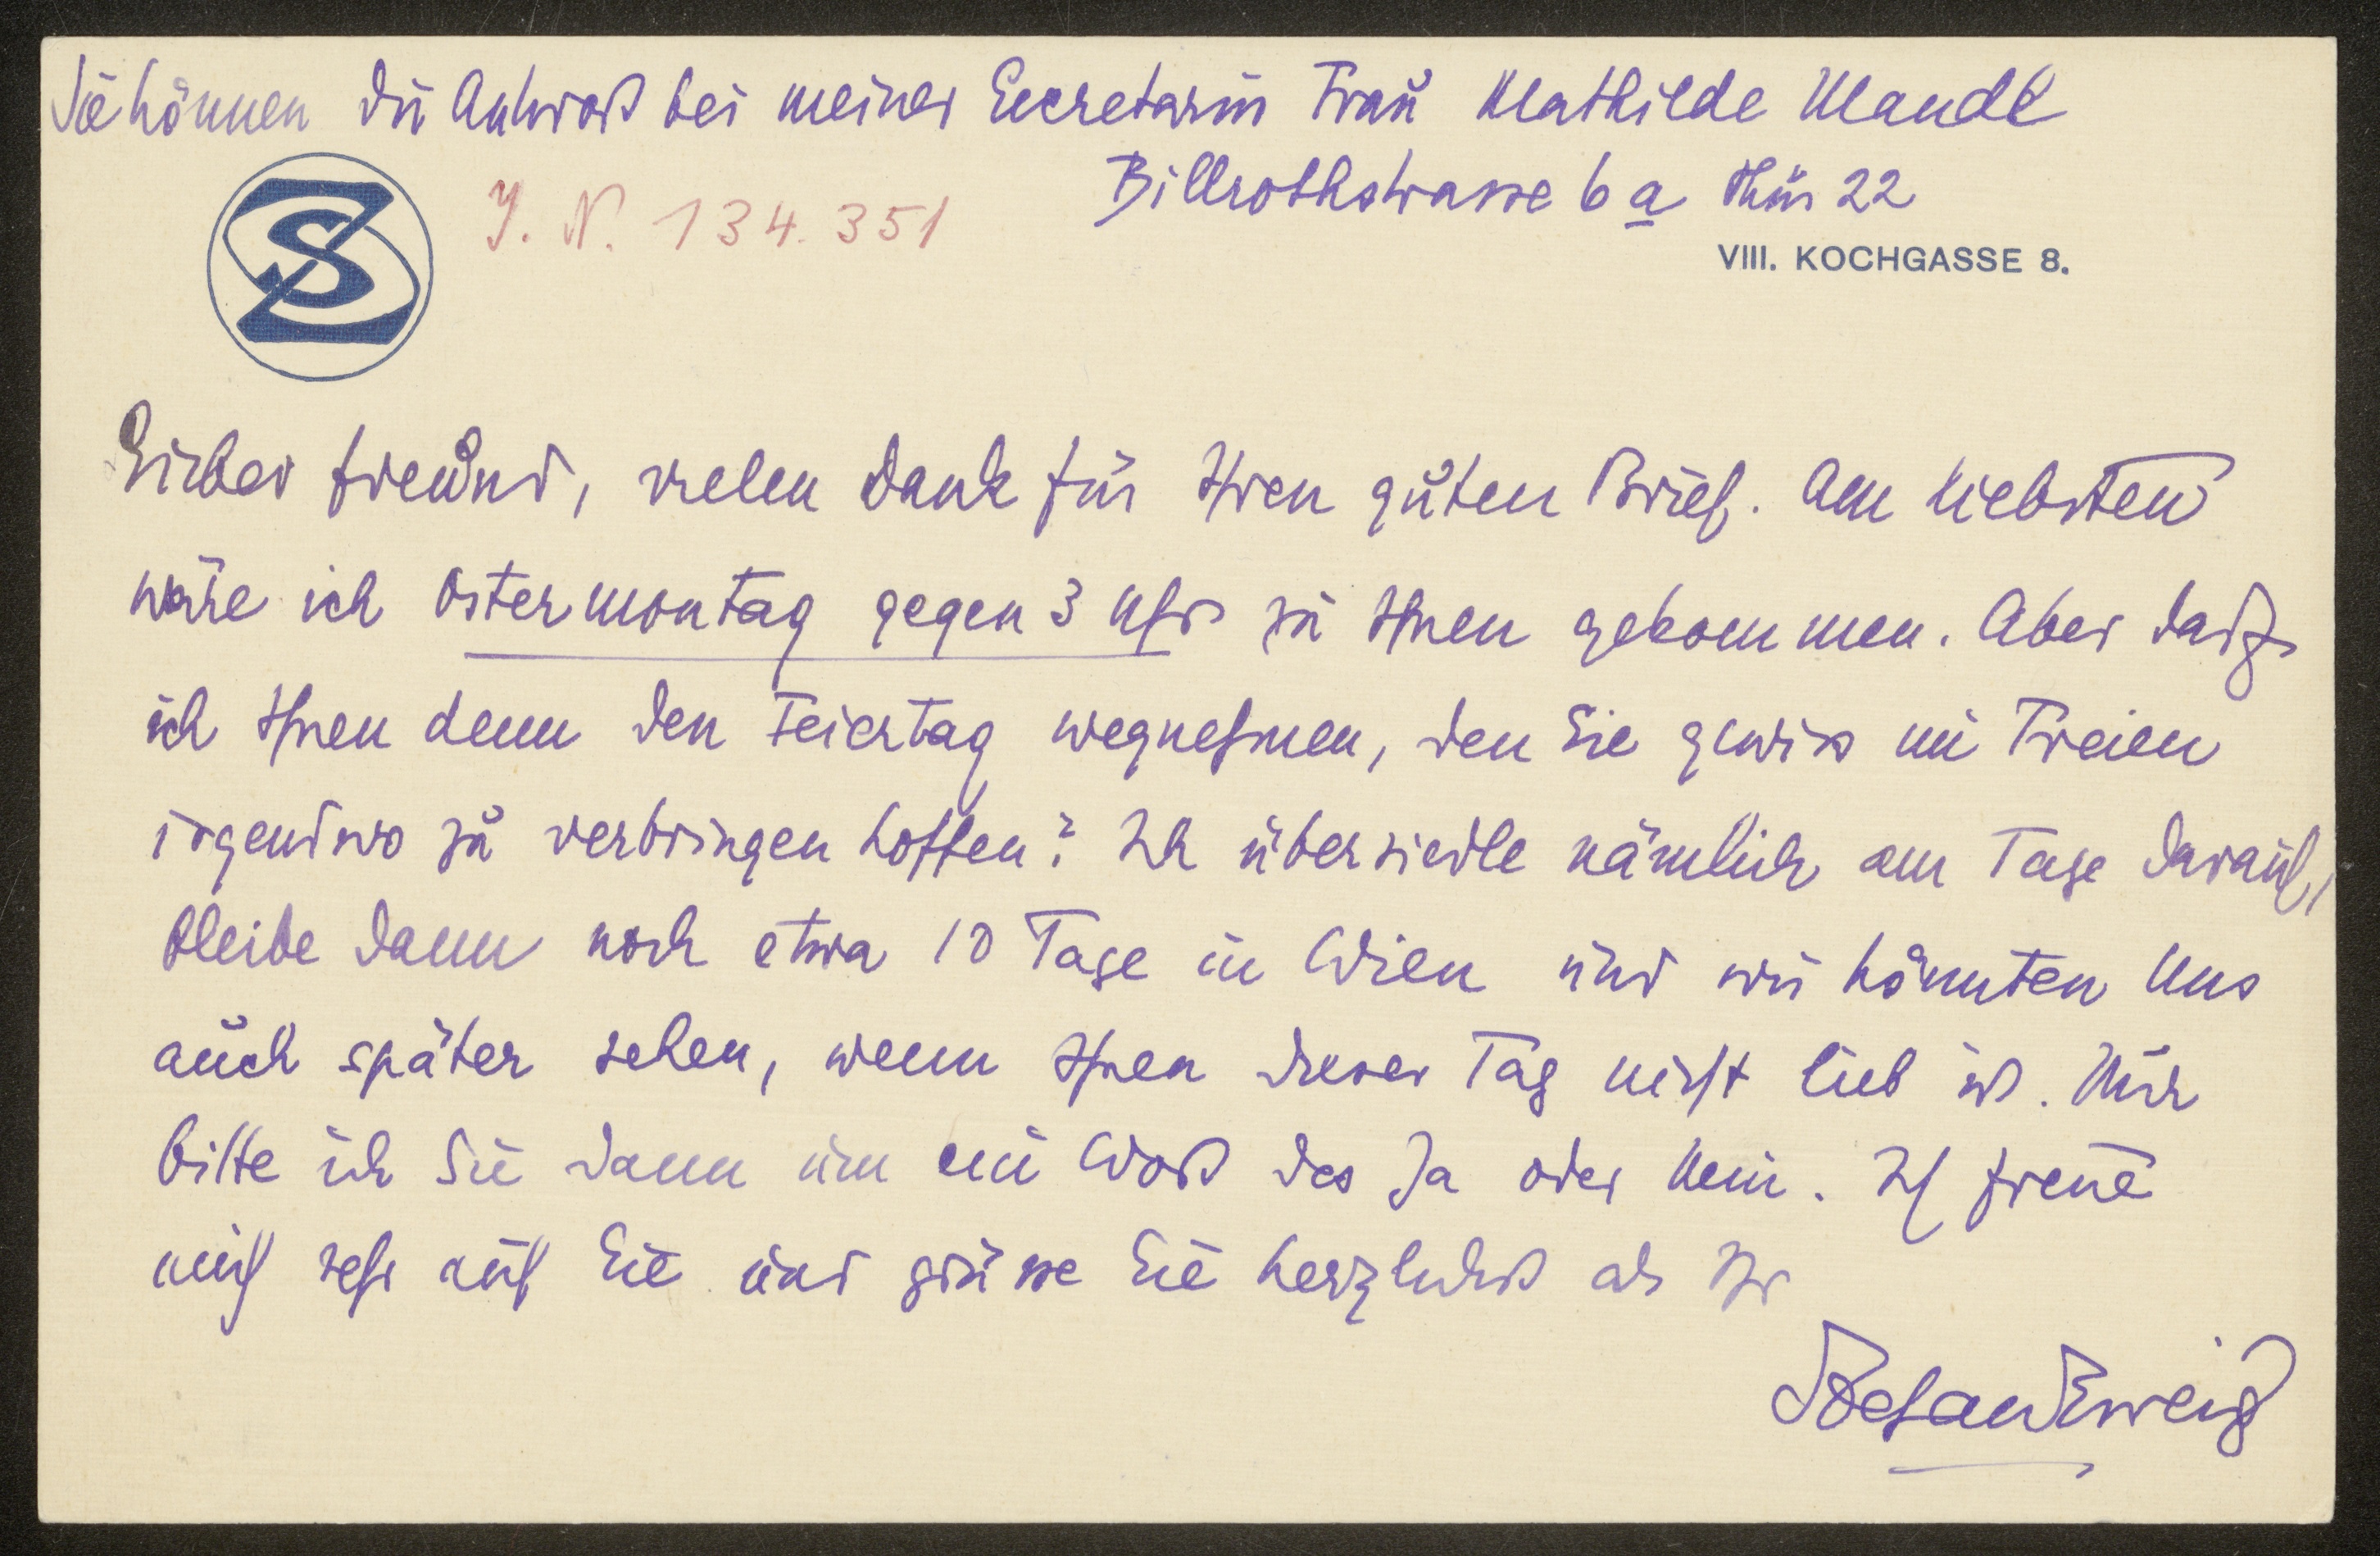 Sie können die Antwort bei meiner Secretärin Frau Mathilde Mandl
Billrothstrasse 6a Thür 22
SZ
I. N. 134.351
VIII. KOCHGASSE 8.
Lieber Freund, vielen Dank für Ihren guten Brief. Am liebsten
wäre ich Ostermontag gegen 3 Uhr zu Ihnen gekommen. Aber darf
ich Ihnen denn den Feiertag wegnehmen, den Sie gewiss im Freien
irgendwo zu verbringen hoffen? Ich übersiedle nämlich am Tage darauf,
bleibe dann noch etwa 10 Tage in Wien und wir könnten uns
auch später sehen, wenn Ihnen dieser Tag nicht lieb ist. Nur
bitte ich Sie dann um ein Wort des Ja oder Nein. Ich freue
mich sehr auf Sie und grüsse Sie herzlichst als Ihr
Stefan Zweig